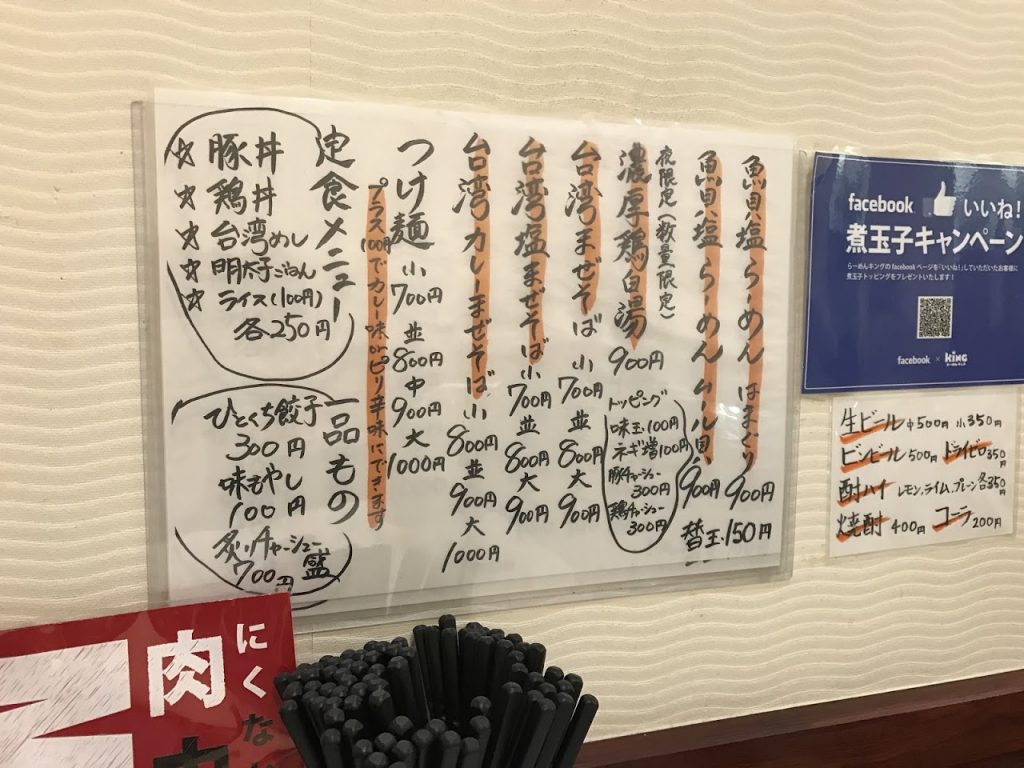 魚貝塩らーめん はまぐり 900円
魚貝塩らーめん ムール貝 900円
替玉・150円
夜限定(数量限定)
濃厚鶏白湯 900円
トッピング
味玉 100円
ネギ増 100円
豚チャーシュー
300円
鶏チャーシュー
300円
台湾まぜそば 小 700円 並 800円 大 900円
台湾塩まぜそば 小 700円 並 800円 大 900円
台湾カレーまぜそば 小 800円 並 900円 大 1000円
つけ麺 小 700円 並 800円 中 900円 大 1000円
プラス100円でカレー味orピリ辛味にできます
定食メニュー
☆ 豚丼
☆ 鶏丼
☆ 台湾めし
☆ 明太子ごはん
☆ ライス(100円)
各250円
一品もの
ひとくち餃子
300円
味もやし
100円
炙りチャーシュー盛
700円
facebook いいね!
煮玉子キャンペーン
らーめんキングのfacebookページを「いいね!」していただいたお客様に
煮玉子トッピングをプレゼントいたします!
facebook × KING
生ビール 中500円 小350円
ビンビール 500円 ドライゼロ 350円
酎ハイ レモン、ライム、プレーン 各350円
焼酎 400円 コーラ 200円
肉
にく